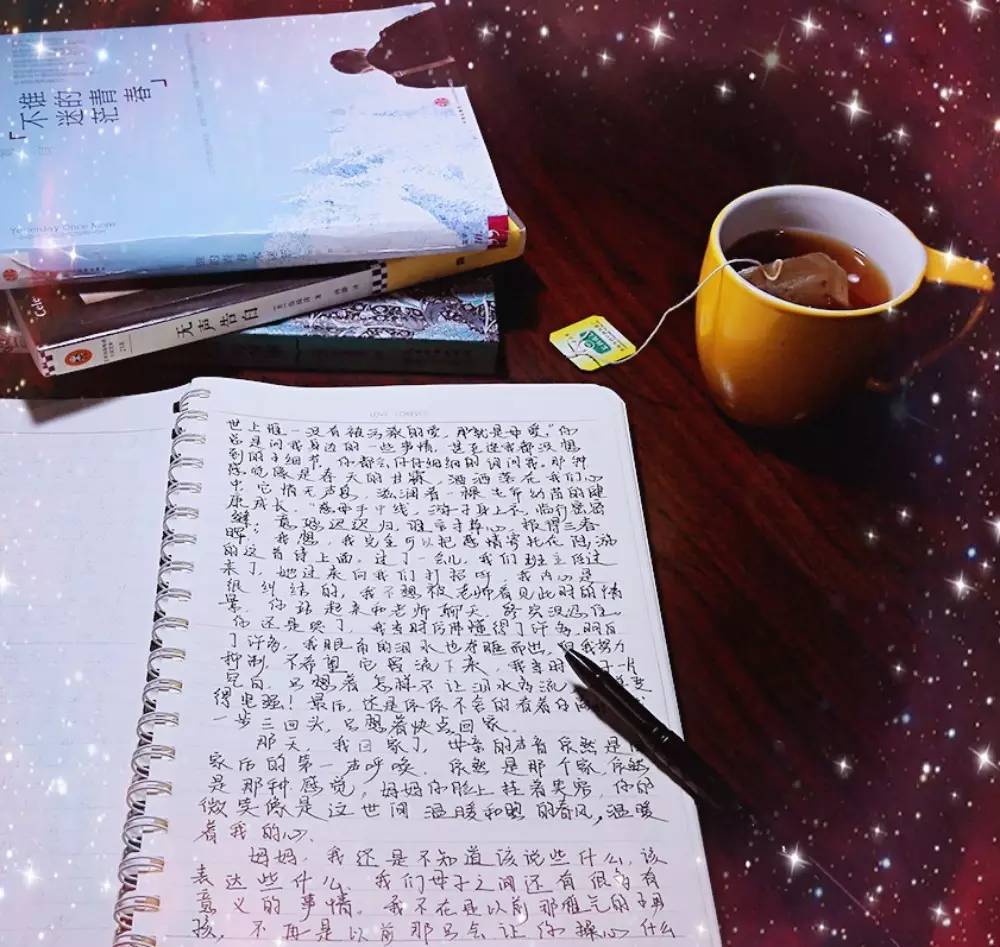 「不谁
迷的
茫青
春」
Yesterday Once More
Cele
无声告白
LOVE FOREVER
世上唯一没有被污染的爱，那就是母爱。"你
总是问我身边的一些事情，甚至连我都没想
到的小细节，你都会仔仔细细的询问我。那种
感觉像是春天的甘霖，洒洒落在我们心
中，它悄无声息，滋润着一棵幼苗的健
康成长。"慈母手中线，游子身上衣，临行密密
缝，意恐迟迟归，谁言寸草心，报得三春
晖，我想，我完全可以把感情寄托在
的这首诗上面。过了一会儿，我们班主任过
来了，她过来向我们打招呼，我内心是
很纠结的，我不想被老师看见此时的情
景。你站起来和老师聊天，
你还是哭了，我当时仿佛懂得了许多，明白
了许多，我眼角的泪水也夺眶而出，但我努力
抑制，不希望它流下来，我当时
空白，只想着怎样不让泪水流
得坚强！最后，还是依依不舍的看着你
一步三回头，只想着快点回家。
那天，我回家了，母亲的声音依然是
家后的第一声呼唤，依然是那个家，依然
是那种感觉，妈妈你脸上挂着笑容，你的
微笑像是这世间温暖和煦的春风，温暖
着我的心。
妈妈，我还是不知道该说些什么，该
表达些什么，我们母子之间还有很多有
意义的事情。我不在是以前那稚气的男
孩，不再是以前那只会让你操心什么